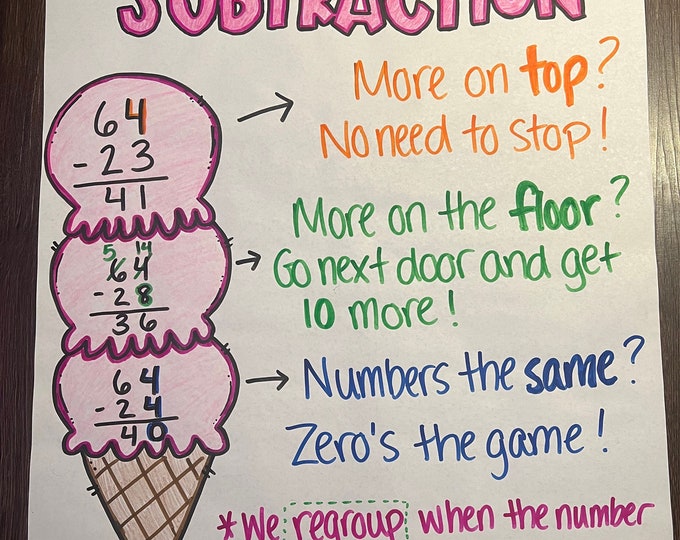 SUBTRACTION
64
- 23
41
More on top?
No need to stop!
5 14
64
- 28
36
More on the floor?
Go next door and get
10 more!
64
- 24
40
Numbers the same?
Zero's the game!
*We regroup when the number